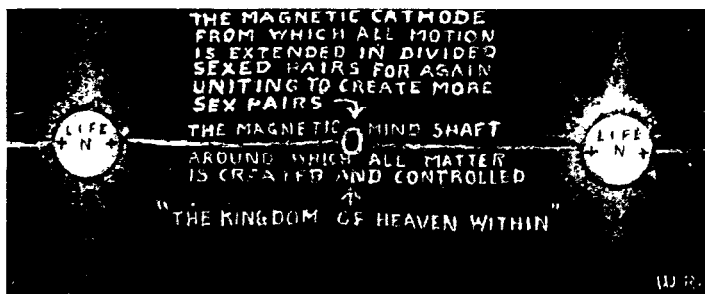 THE MAGNETIC CATHODE
FROM WHICH ALL MOTION
IS EXTENDED IN DIVIDED
SEXED PAIRS FOR AGAIN
UNITING TO CREATE MORE
SEX PAIRS
LIFE
+ N +
THE MAGNETIC 0 MIND SHAFT
LIFE
+ N +
AROUND WHICH ALL MATTER
IS CREATED AND CONTROLLED
"THE KINGDOM OF HEAVEN WITHIN"
W.R.